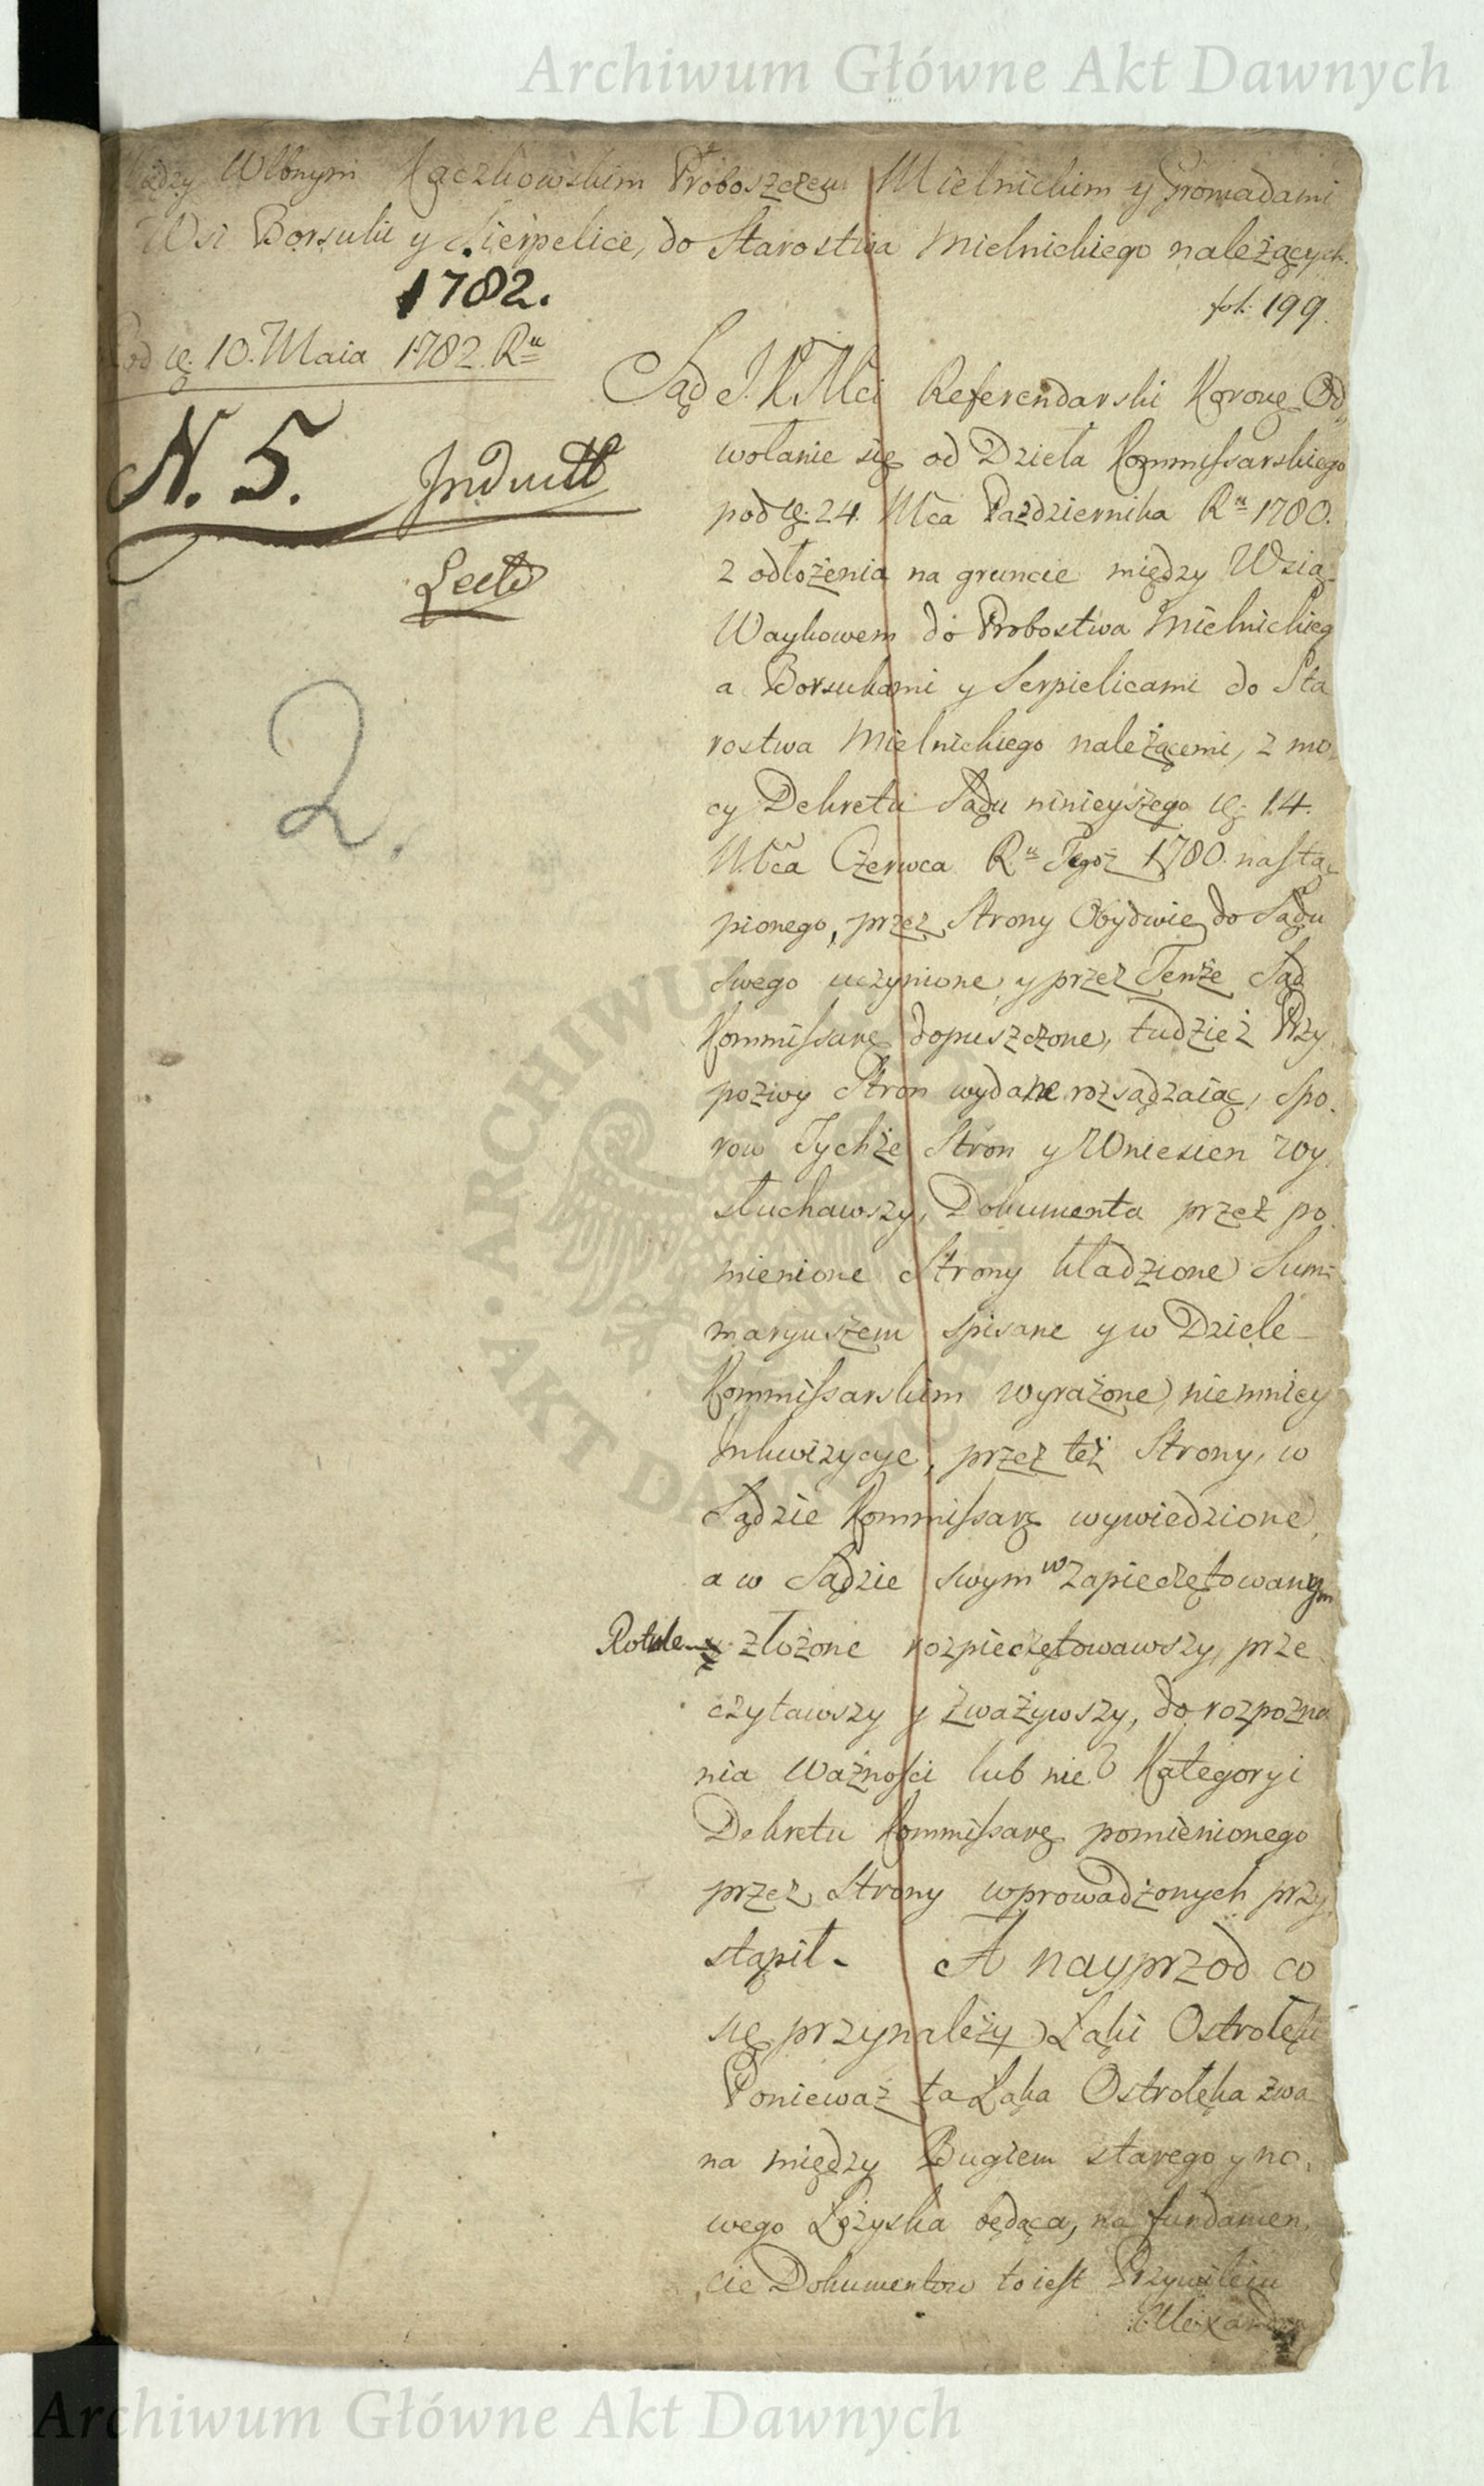 Archiwum Główne Akt Dawnych
Między Wlbnym Kączkowskim Proboszczem Mielnickim y Gromadami
Wsi Borsuki y Sierpelice, do Starostwa Mielnickiego należących.
1782.
fol: 199.
Pod 10. Maia 1782. Ru
N. 5. Induct
Lecto
2.
Sąd J. K Mci Referendarski Koronę. Od„
wołanie się od Dzieła Kommissarskiego
pod 24. Mca Pazdziernika Ru 1780.
z odłożenia na gruncie między Wsią
Waykowem do Probostwa Mielnickieg
a Borsukami y Serpielicami do Sta
rostwa Mielnickiego należącemi, z mo„
cy Dekretu Sądu ninieyszego 14.
Mca Czerwca Ru Tegoż 1780. nastą„
pionego, przez Strony Obydwie do Sądu
swego uczynione, y przez Tenże Sąd
Kommissarę dopuszczone, tudzież Przy„
pozwy Stron wydane rozsądzaiąc, Spo„
row Tychże Stron y Wniesien wy„
słuchawszy, Dokumenta przez po„
mienione Strony kładzione Sum„
maryuszem spisane y w Dziele
Kommissarskim wyrażone, niemniey
Inkwizycye, przez też Strony, w
Sądzie Kommissarę wywiedzione,
a w Sądzie swym w zapieczętowanym
Rotule złożone rozpieczętowawszy, prze
czytawszy y zważywszy, do rozpozna
nia ważności lub nie Kategoryi
Dekretu Kommissarę pomienionego
przez Strony wprowadzonych przy„
stąpił. A nayprzod co
się przynależy Łąki Ostrołęki
Ponieważ ta Łąka Ostrołęka zwa
na między Bugiem starego y no„
wego Łożyska będąca, na fundamen„
cie Dokumentow to iest Przywileiu
Alexandra
ARCHIWUM
AKT DAWNYCH
Archiwum Główne Akt Dawnych